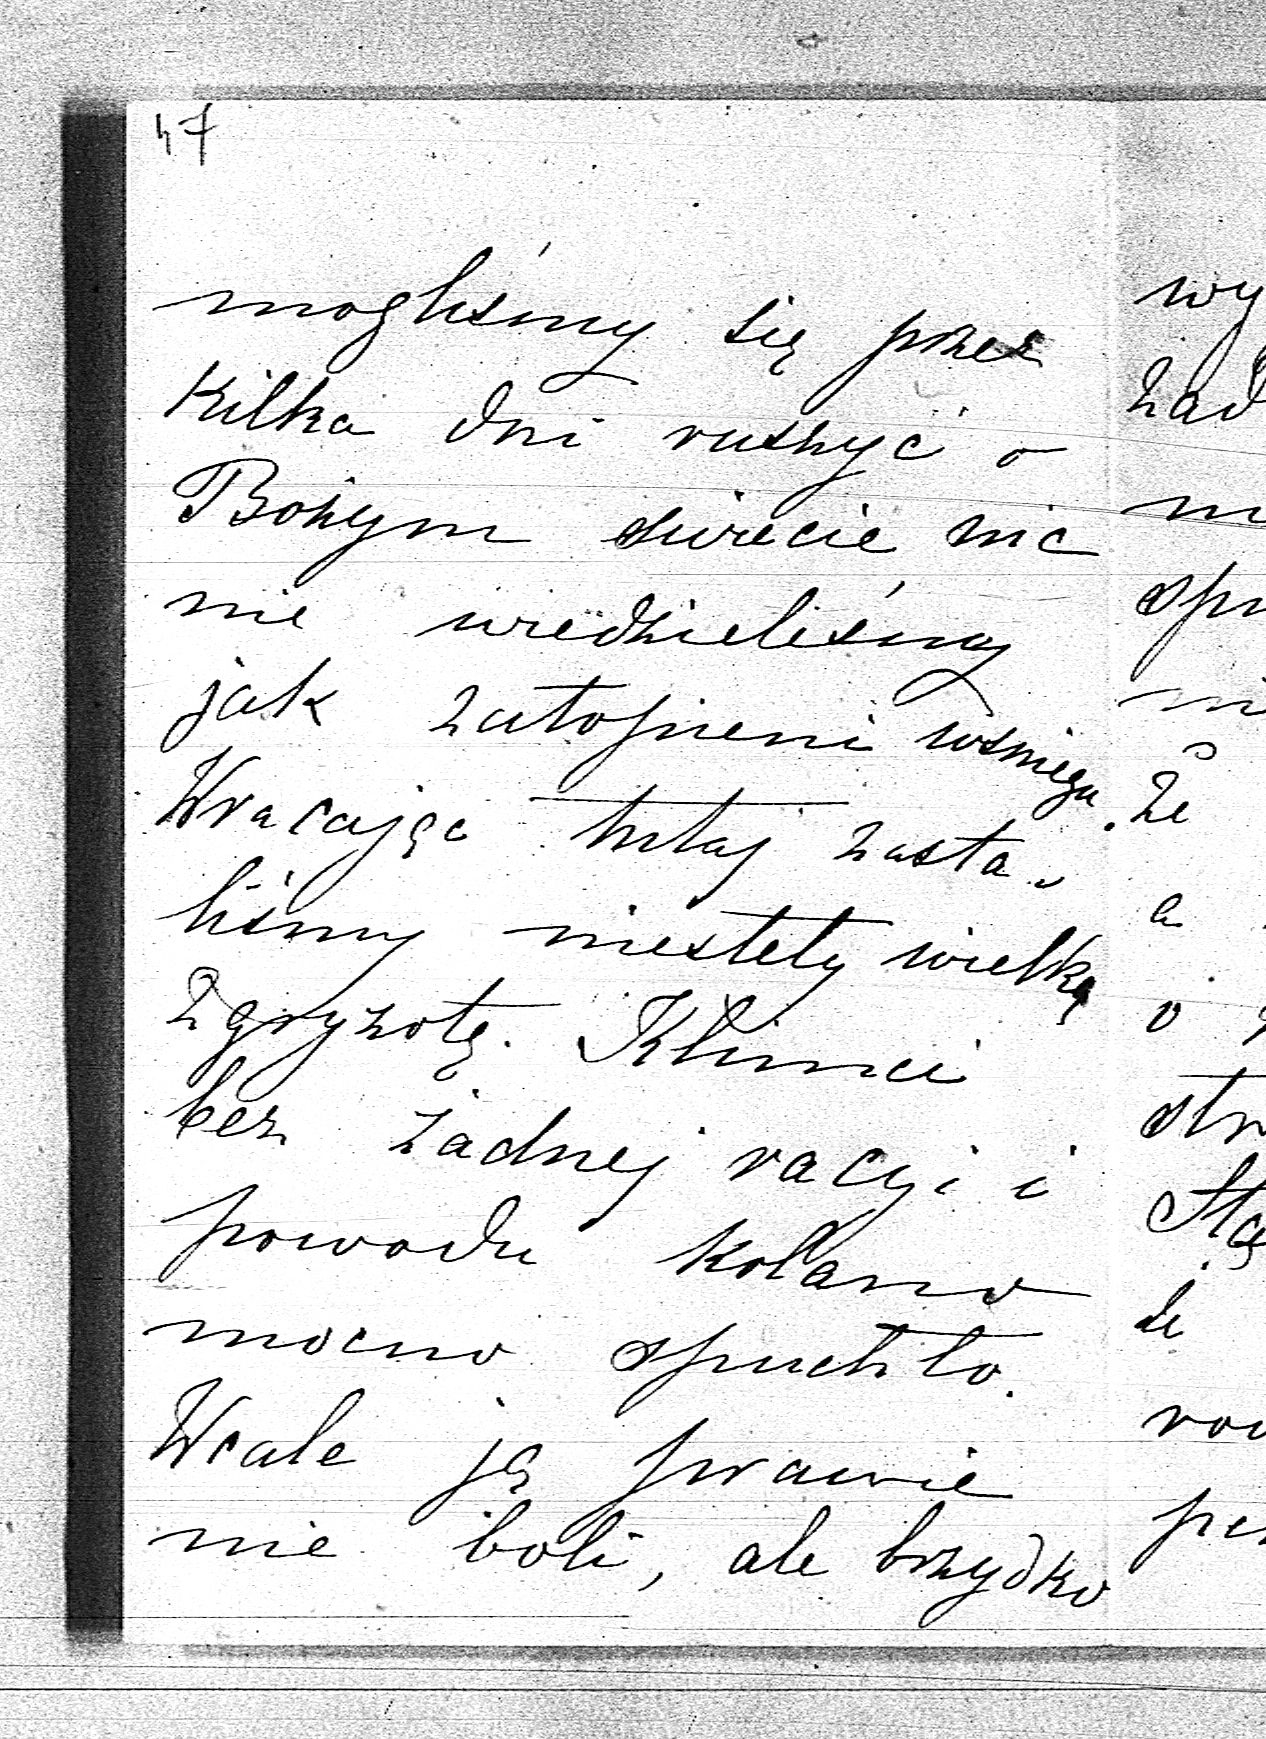 47
mogliśmy się przez
kilka dni ruszyć o
Bożym świecie nic
nie wiedzieliśmy
jak zatopieni w śniegu.
Wracając tutaj zasta-
liśmy niestety wielką
zgryzotę. Klimci
bez żadnej racyi i
powodu kolano
mocno spuchło.
Wcale ją prawie
nie boli, ale brzydko
wy
żad
spu
że
a
o
str
Stą